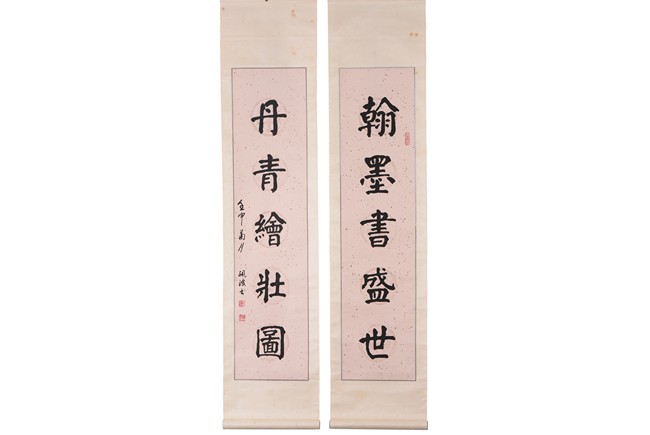 翰墨書盛世
丹青繪壯圖
壬申菊月